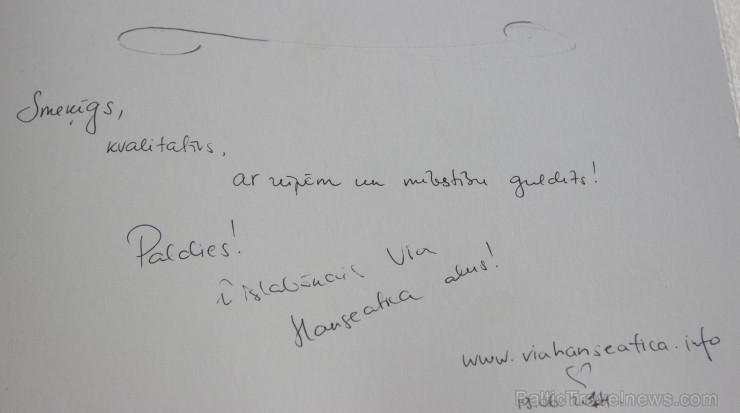 Smeķīgs,
kvalitatīvs,
ar rūpēm un mīlestību guldīts!
Paldies!
Vislabākais Via
Hanseatica alus!
www.viahanseatica.info
BalticTravelnews.com